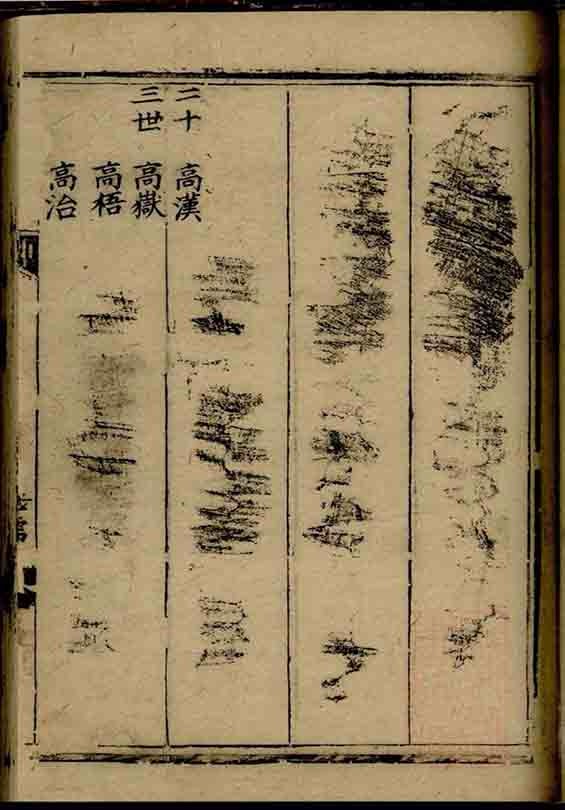 二十三世
高漢
高嶽
高梧
高治